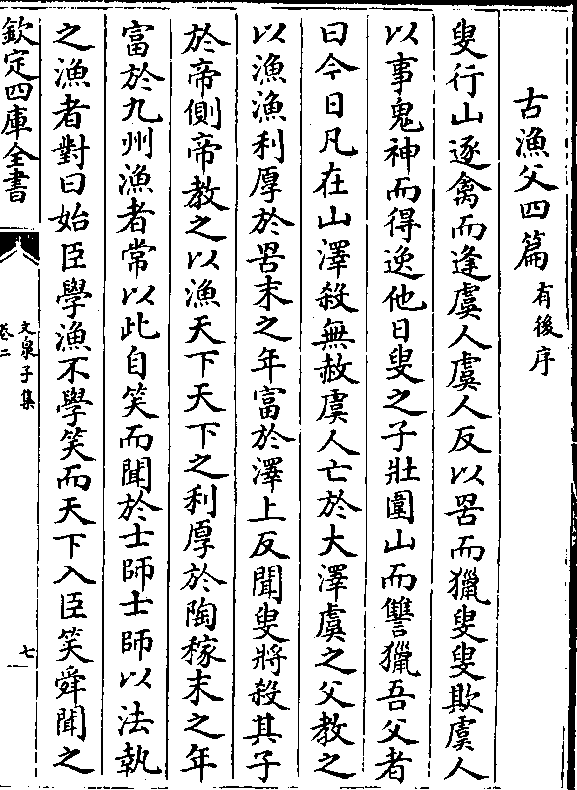 古漁父四篇有後序
叟行山逐禽而逢虞人虞人反以罟而獵叟叟欺虞人
以事鬼神而得逸他日叟之子壯圍山而讐獵吾父者
曰今日凡在山澤殺無赦虞人亡於大澤虞之父教之
以漁漁利厚於罟末之年富於澤上反聞叟將殺其子
於帝側帝教之以漁天下天下之利厚於陶稼末之年
富於九州漁者常以此自笑而聞於士師士師以法執
之漁者對曰始臣學漁不學笑而天下入臣笑舜聞之
欽定四庫全書
文泉子集
卷二
七